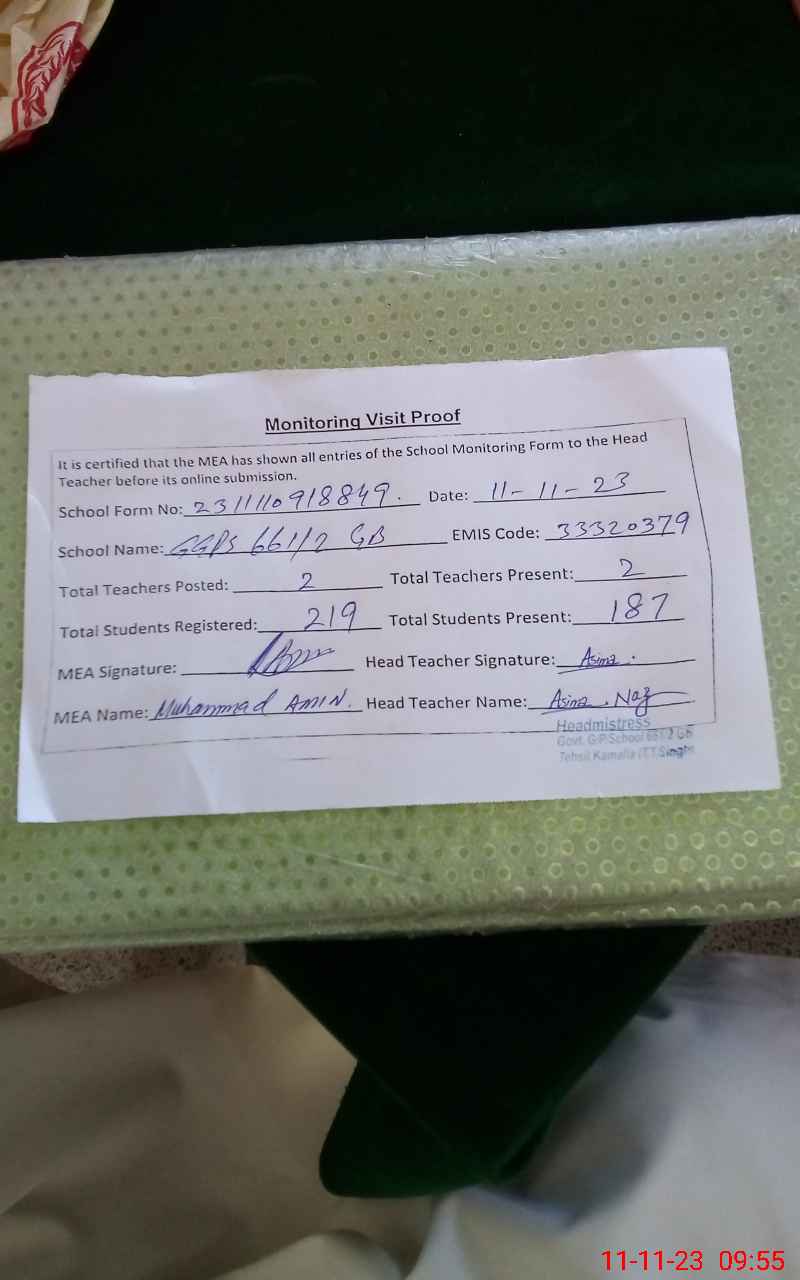 Monitoring Visit Proof
It is certified that the MEA has shown all entries of the School Monitoring Form to the Head
Teacher before its online submission.
School Form No: 231110918849. Date: 11-11-23
School Name: GGPS 661/2 GB EMIS Code: 33320379
Total Teachers Posted: 2 Total Teachers Present: 2
Total Students Registered: 219 Total Students Present: 187
MEA Signature: Head Teacher Signature: Asima.
MEA Name: Muhammad AMIN. Head Teacher Name: Asima. Naz
Headmistress
Govt. G/P/School 661/2 GB
Tehsil Kamalia (T.T.Singh)
11-11-23 09:55